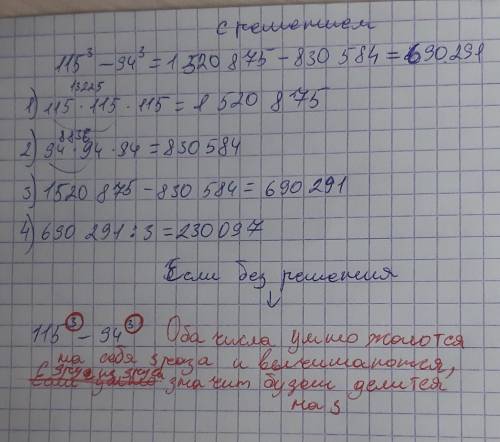 с решением
115³ - 94³ = 1 520 875 - 830 584 = 690 291
13225
1) 115 · 115 · 115 = 1 520 875
8836
2) 94 · 94 · 94 = 830 584
3) 1520 875 - 830 584 = 690 291
4) 690 291 : 3 = 230 097
Если без решения
115³ - 94³ Оба числа умно жаются
на себя 3 раза и вычитаются,
значит будет делится
на 3